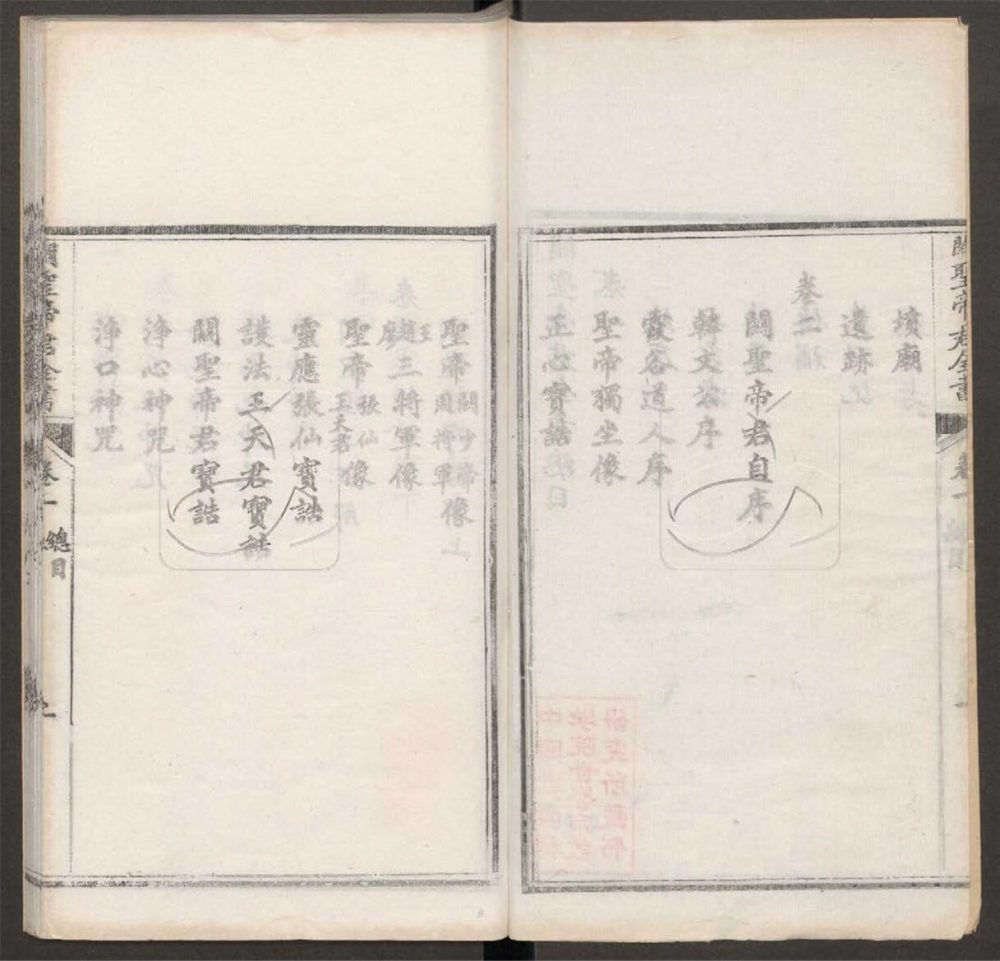 關聖帝君全書
墳廟
遺跡
卷二
關聖帝君自序
韓文公序
靈容道人序
聖帝獨坐像
正心寶誥
聖帝關少帝周將軍像
趙三將軍像
聖帝張仙王天君像
靈應張仙寶誥
護法王天君寶誥
關聖帝君寶誥
淨心神咒
淨口神咒
關聖帝君全書
卷一
總目